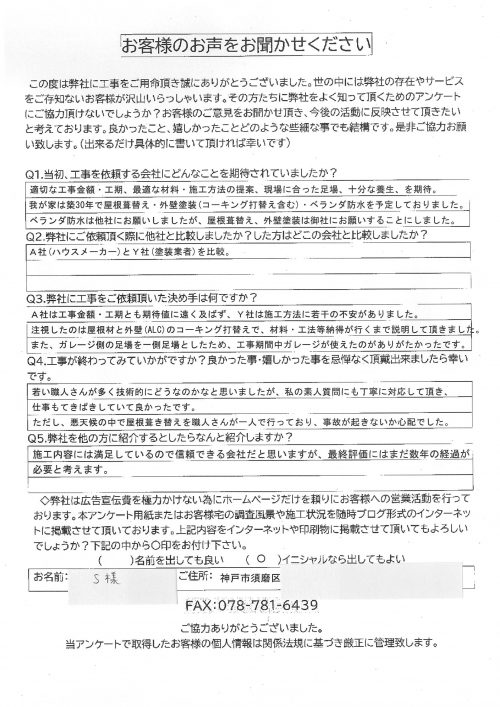 お客様のお声をお聞かせください
この度は弊社に工事をご用命頂き誠にありがとうございました。世の中には弊社の存在やサービス
をご存知ないお客様が沢山いらっしゃいます。その方たちに弊社をよく知って頂くためのアンケート
にご協力頂けないでしょうか？お客様のご意見をお聞かせ頂き、今後の活動に反映させて頂きたい
と考えております。良かったこと、嬉しかったことどのような些細な事でも結構です。是非ご協力お願
い致します。（出来るだけ具体的に書いて頂ければ幸いです）
Q1.当初、工事を依頼する会社にどんなことを期待されていましたか？
適切な工事金額・工期、最適な材料・施工方法の提案、現場に合った足場、十分な養生、を期待。
我が家は築30年で屋根葺替え・外壁塗装（コーキング打替え含む）・ベランダ防水を予定しておりました。
ベランダ防水は他社にお願いしましたが、屋根葺替え、外壁塗装は御社にお願いすることにしました。
Q2.弊社にご依頼頂く際に他社と比較しましたか？した方はどこの会社と比較しましたか？
A社（ハウスメーカー）とY社（塗装業者）を比較。
Q3.弊社に工事をご依頼頂いた決め手は何ですか？
A社は工事金額・工期とも期待値に遠く及ばず、Y社は施工方法に若干の不安がありました。
注視したのは屋根材と外壁（ALC）のコーキング打替えで、材料・工法等納得が行くまで説明して頂きました。
また、ガレージ側の足場を一側足場としたため、工事期間中ガレージが使えたのがありがたかったです。
Q4.工事が終わってみていかがですか？良かった事・嬉しかった事を忌憚なく頂戴出来ましたら幸い
です。
若い職人さんが多く技術的にどうなのかなと思いましたが、私の素人質問にも丁寧に対応して頂き、
仕事もてきぱきしていて良かったです。
ただし、悪天候の中で屋根葺き替えを職人さんが一人で行っており、事故が起きないか心配でした。
Q5.弊社を他の方に紹介するとしたらなんと紹介しますか？
施工内容には満足しているので信頼できる会社だと思いますが、最終評価にはまだ数年の経過が
必要と考えます。
◇弊社は広告宣伝費を極力かけない為にホームページだけを頼りにお客様への営業活動を行って
おります。本アンケート用紙またはお客様宅の調査風景や施工状況を随時ブログ形式のインターネッ
トに掲載させて頂いております。上記内容をインターネットや印刷物に掲載させて頂いてもよろしい
でしょうか？下記の中から○印をお付け下さい。
（　　）名前を出しても良い　（ ○ ）イニシャルなら出してもよい
お名前： S様 ご住所： 神戸市須磨区
FAX:078-781-6439
ご協力ありがとうございました。
当アンケートで取得したお客様の個人情報は関係法規に基づき厳正に管理致します。